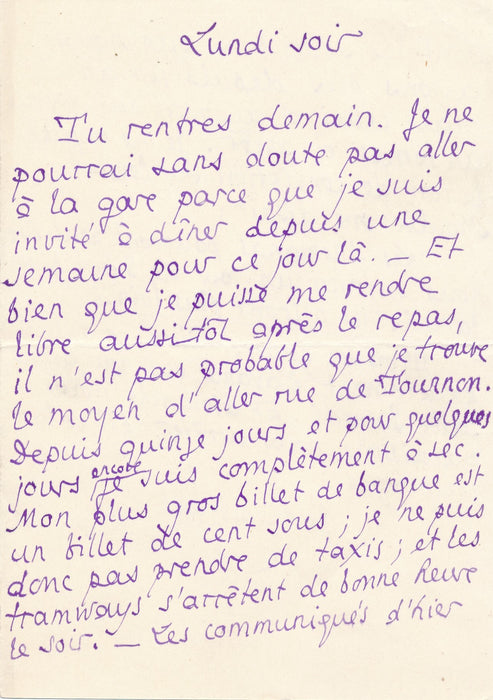 Lundi soir
Tu rentres demain. Je ne
pourrai sans doute pas aller
à la gare parce que je suis
invité à dîner depuis une
semaine pour ce jour là. — Et
bien que je puisse me rendre
libre aussitôt après le repas,
il n'est pas probable que je trouve
le moyen d'aller rue de Tournon.
Depuis quinze jours et pour quelques
jours encore je suis complètement à sec.
Mon plus gros billet de banque est
un billet de cent sous ; je ne puis
donc pas prendre de taxis ; et les
tramways s'arrêtent de bonne heure
le soir. — Les communiqués d'hier